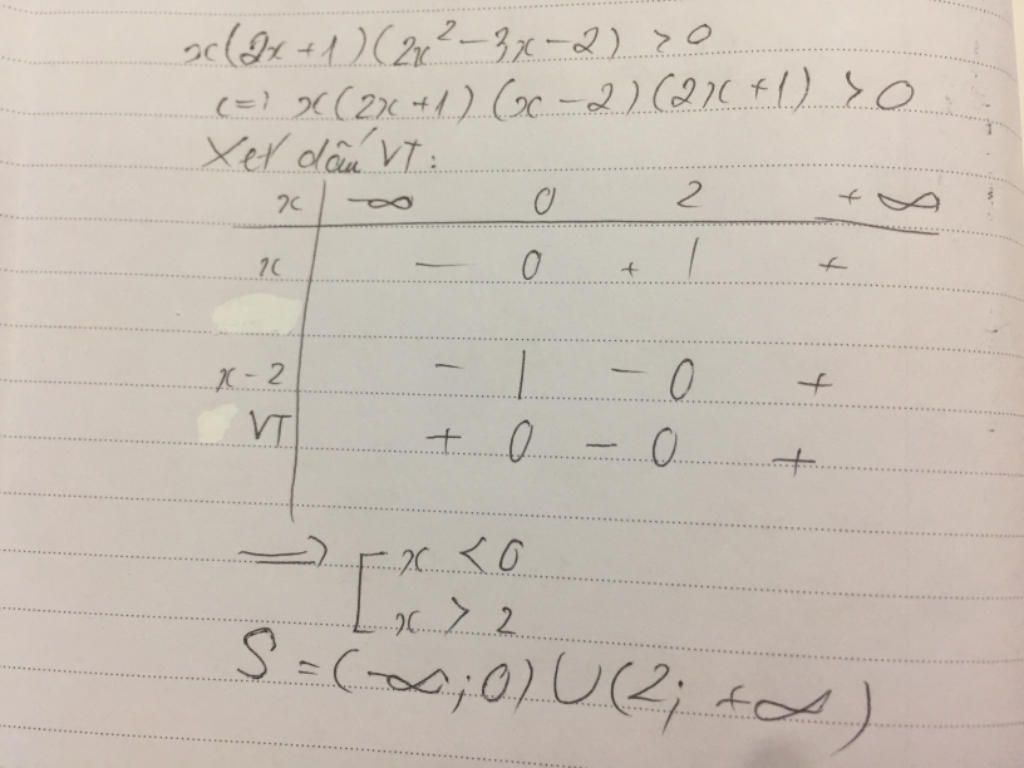 x(2x+1)(2x²-3x-2) > 0
<=> x(2x+1)(x-2)(2x+1) > 0
Xét dấu VT:
x -∞ 0 2 +∞
x - 0 + | +
x-2 - | - 0 +
VT + 0 - 0 +
=> [ x < 0
x > 2
S = (-∞; 0) ∪ (2; +∞)